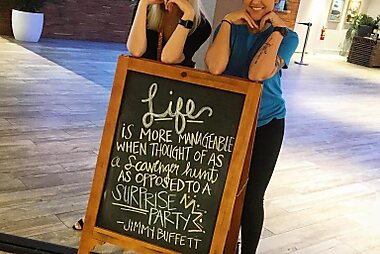 Life
IS MORE MANAGEABLE
WHEN THOUGHT OF AS
a Scavenger hunt
AS OPPOSED TO A
SURPRISE
PARTY
-JIMMY BUFFETT